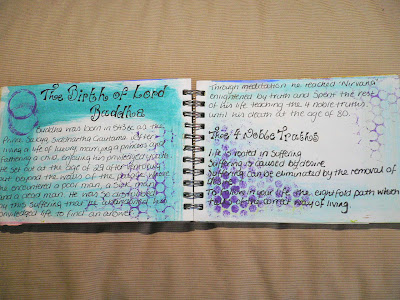 The Birth of Lord
Buddha
Buddha was born in 563BC as the
Prince Sakya, Siddhartha Gautama. After
living a life of luxury, marrying a princess and
fathering a child, enjoying his privileged youth
He set out at the age of 29 after
out beyond the walls of the palace where
he encountered a poor man, a sick man
and a dead man. He was so
by this suffering that he
priviledged life to find an answer.
Through meditation he reached 'Nirvana'
enlightened by truth and spent the rest
of his life teaching the 4 noble truths
until his death at the age of 80.
The 4 Noble Truths
Life is rooted in suffering
Suffering is caused by desire
Suffering can be eliminated by the removal of
To follow in your life the eight fold path which
of the correct way of living.